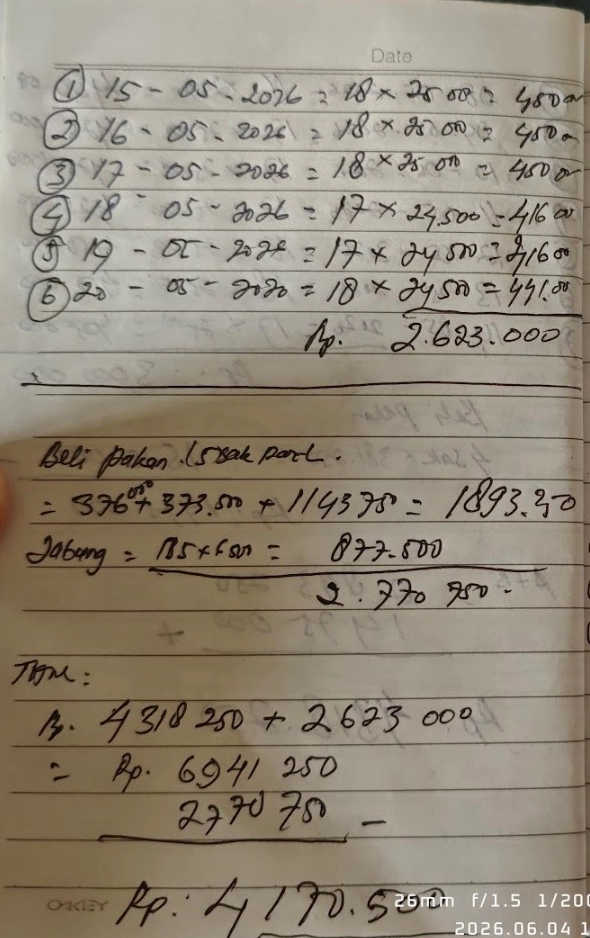 Date
① 15 - 05 - 2026 = 18 × 25 000 = 450 000
② 16 - 05 - 2026 = 18 × 25 000 = 450 000
③ 17 - 05 - 2026 = 18 × 25 000 = 450 000
④ 18 - 05 - 2026 = 17 × 24.500 = 416 00
⑤ 19 - 05 - 2026 = 17 × 24 500 = 416 00
⑥ 20 - 05 - 2020 = 18 × 24 500 = 441.00
Rp. 2.623.000
Beli pakan . 5 sak
= 376 000 + 373.500 + 1143 750 = 1893.250
= 135 × 6500 = 877.500
2.770 750
Rp. 4318 250 + 2623 000
= Rp. 6941 250
2770 750 -
OKEY Rp: 4 170.500
26mm f/1.5 1/200
2026.06.04 1